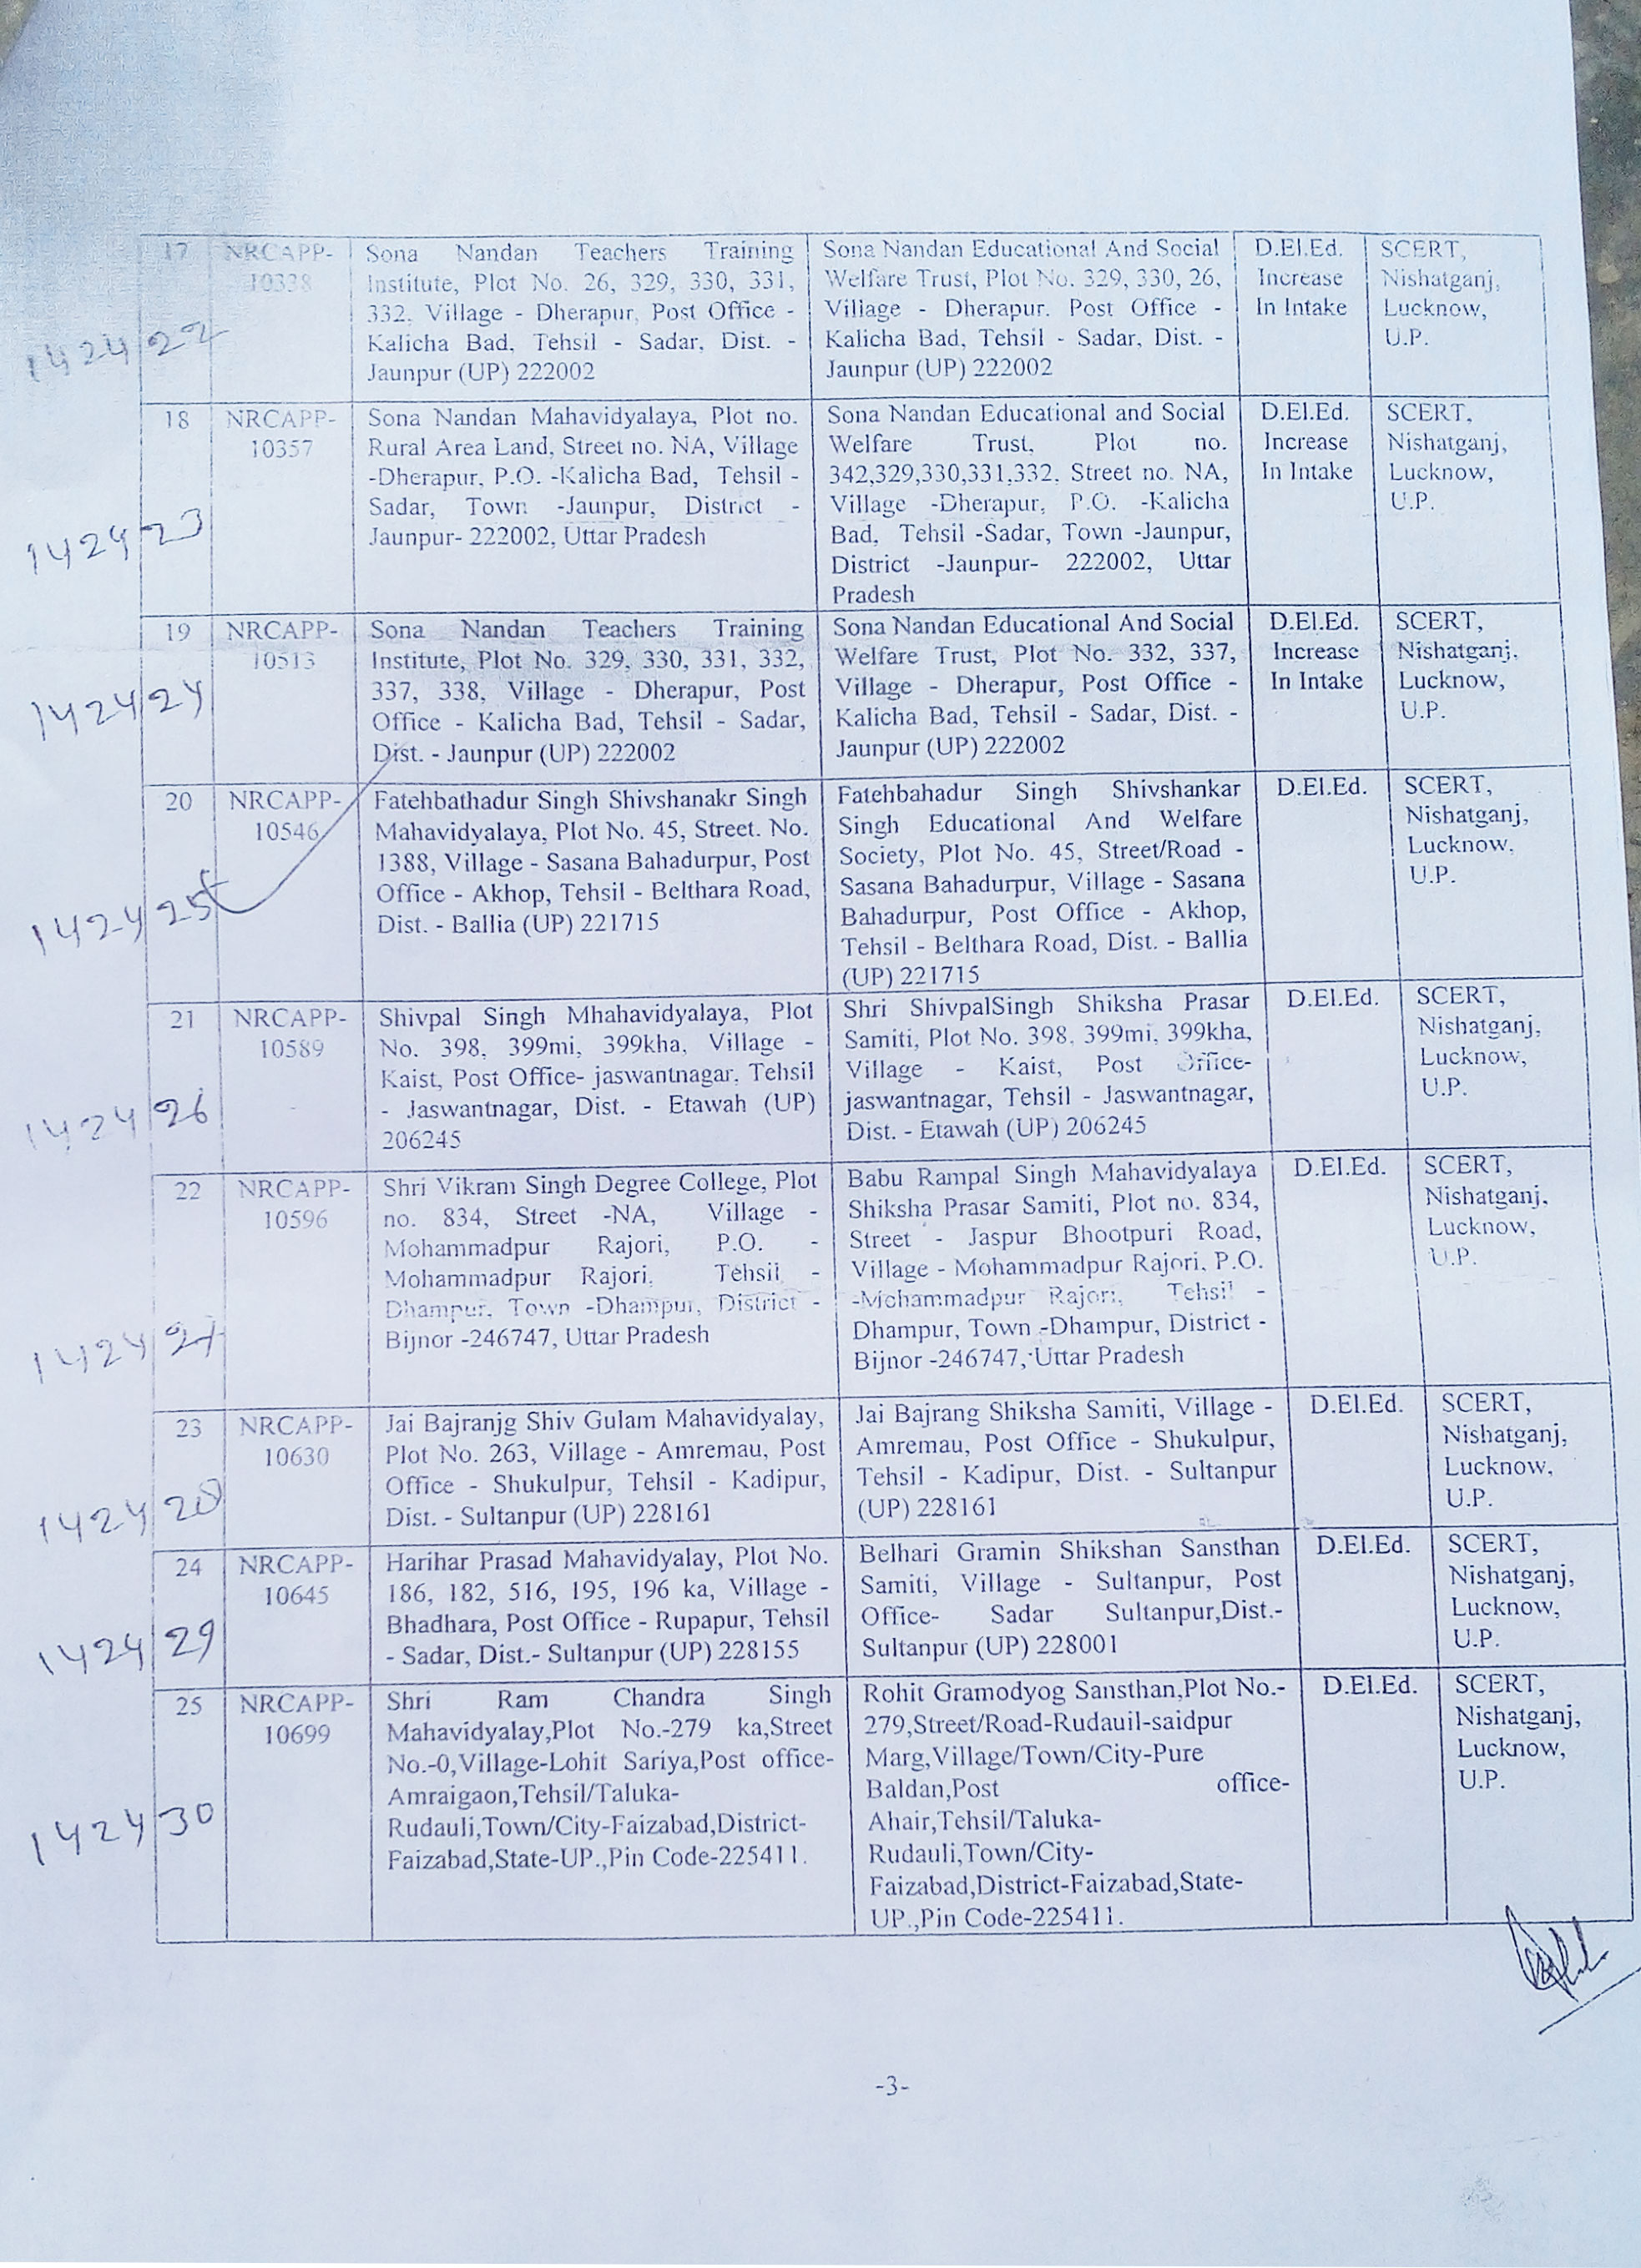 17
NRCAPP-
10338
Sona Nandan Teachers Training
Institute, Plot No. 26, 329, 330, 331,
332, Village - Dherapur, Post Office -
Kalicha Bad, Tehsil - Sadar, Dist. -
Jaunpur (UP) 222002
Sona Nandan Educational And Social
Welfare Trust, Plot No. 329, 330, 26,
Village - Dherapur. Post Office -
Kalicha Bad, Tehsil - Sadar, Dist. -
Jaunpur (UP) 222002
D.El.Ed.
Increase
In Intake
SCERT,
Nishatganj,
Lucknow,
U.P.
142422
18
NRCAPP-
10357
Sona Nandan Mahavidyalaya, Plot no.
Rural Area Land, Street no. NA, Village
-Dherapur, P.O. -Kalicha Bad, Tehsil -
Sadar, Town -Jaunpur, District -
Jaunpur- 222002, Uttar Pradesh
Sona Nandan Educational and Social
Welfare Trust, Plot no.
342,329,330,331,332, Street no. NA,
Village -Dherapur, P.O. -Kalicha
Bad, Tehsil -Sadar, Town -Jaunpur,
District -Jaunpur- 222002, Uttar
Pradesh
D.El.Ed.
Increase
In Intake
SCERT,
Nishatganj,
Lucknow,
U.P.
142423
19
NRCAPP-
10513
Sona Nandan Teachers Training
Institute, Plot No. 329, 330, 331, 332,
337, 338, Village - Dherapur, Post
Office - Kalicha Bad, Tehsil - Sadar,
Dist. - Jaunpur (UP) 222002
Sona Nandan Educational And Social
Welfare Trust, Plot No. 332, 337,
Village - Dherapur, Post Office -
Kalicha Bad, Tehsil - Sadar, Dist. -
Jaunpur (UP) 222002
D.El.Ed.
Increase
In Intake
SCERT,
Nishatganj,
Lucknow,
U.P.
142424
20
NRCAPP-
10546
Fatehbathadur Singh Shivshanakr Singh
Mahavidyalaya, Plot No. 45, Street. No.
1388, Village - Sasana Bahadurpur, Post
Office - Akhop, Tehsil - Belthara Road,
Dist. - Ballia (UP) 221715
Fatehbahadur Singh Shivshankar
Singh Educational And Welfare
Society, Plot No. 45, Street/Road -
Sasana Bahadurpur, Village - Sasana
Bahadurpur, Post Office - Akhop,
Tehsil - Belthara Road, Dist. - Ballia
(UP) 221715
D.El.Ed.
SCERT,
Nishatganj,
Lucknow,
U.P.
142425
21
NRCAPP-
10589
Shivpal Singh Mhahavidyalaya, Plot
No. 398, 399mi, 399kha, Village -
Kaist, Post Office- jaswantnagar, Tehsil
- Jaswantnagar, Dist. - Etawah (UP)
206245
Shri ShivpalSingh Shiksha Prasar
Samiti, Plot No. 398, 399mi, 399kha,
Village - Kaist, Post Office-
jaswantnagar, Tehsil - Jaswantnagar,
Dist. - Etawah (UP) 206245
D.El.Ed.
SCERT,
Nishatganj,
Lucknow,
U.P.
142426
22
NRCAPP-
10596
Shri Vikram Singh Degree College, Plot
no. 834, Street -NA, Village -
Mohammadpur Rajori, P.O. -
Mohammadpur Rajori, Tehsil -
Dhampur, Town -Dhampur, District -
Bijnor -246747, Uttar Pradesh
Babu Rampal Singh Mahavidyalaya
Shiksha Prasar Samiti, Plot no. 834,
Street - Jaspur Bhootpuri Road,
Village - Mohammadpur Rajori, P.O.
-Mohammadpur Rajori, Tehsil -
Dhampur, Town -Dhampur, District -
Bijnor -246747, Uttar Pradesh
D.El.Ed.
SCERT,
Nishatganj,
Lucknow,
U.P.
142427
23
NRCAPP-
10630
Jai Bajranjg Shiv Gulam Mahavidyalay,
Plot No. 263, Village - Amremau, Post
Office - Shukulpur, Tehsil - Kadipur,
Dist. - Sultanpur (UP) 228161
Jai Bajrang Shiksha Samiti, Village -
Amremau, Post Office - Shukulpur,
Tehsil - Kadipur, Dist. - Sultanpur
(UP) 228161
D.El.Ed.
SCERT,
Nishatganj,
Lucknow,
U.P.
142428
24
NRCAPP-
10645
Harihar Prasad Mahavidyalay, Plot No.
186, 182, 516, 195, 196 ka, Village -
Bhadhara, Post Office - Rupapur, Tehsil
- Sadar, Dist.- Sultanpur (UP) 228155
Belhari Gramin Shikshan Sansthan
Samiti, Village - Sultanpur, Post
Office- Sadar Sultanpur,Dist.-
Sultanpur (UP) 228001
D.El.Ed.
SCERT,
Nishatganj,
Lucknow,
U.P.
142429
25
NRCAPP-
10699
Shri Ram Chandra Singh
Mahavidyalay,Plot No.-279 ka,Street
No.-0,Village-Lohit Sariya,Post office-
Amraigaon,Tehsil/Taluka-
Rudauli,Town/City-Faizabad,District-
Faizabad,State-UP.,Pin Code-225411.
Rohit Gramodyog Sansthan,Plot No.-
279,Street/Road-Rudauil-saidpur
Marg,Village/Town/City-Pure
Baldan,Post office-
Ahair,Tehsil/Taluka-
Rudauli,Town/City-
Faizabad,District-Faizabad,State-
UP.,Pin Code-225411.
D.El.Ed.
SCERT,
Nishatganj,
Lucknow,
U.P.
142430
-3-